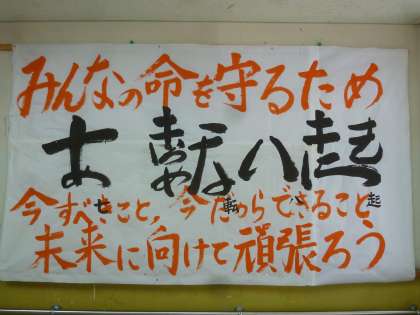 みんなの命を守るため
七転八起
今すべきこと,今だからできること
未来に向けて頑張ろう